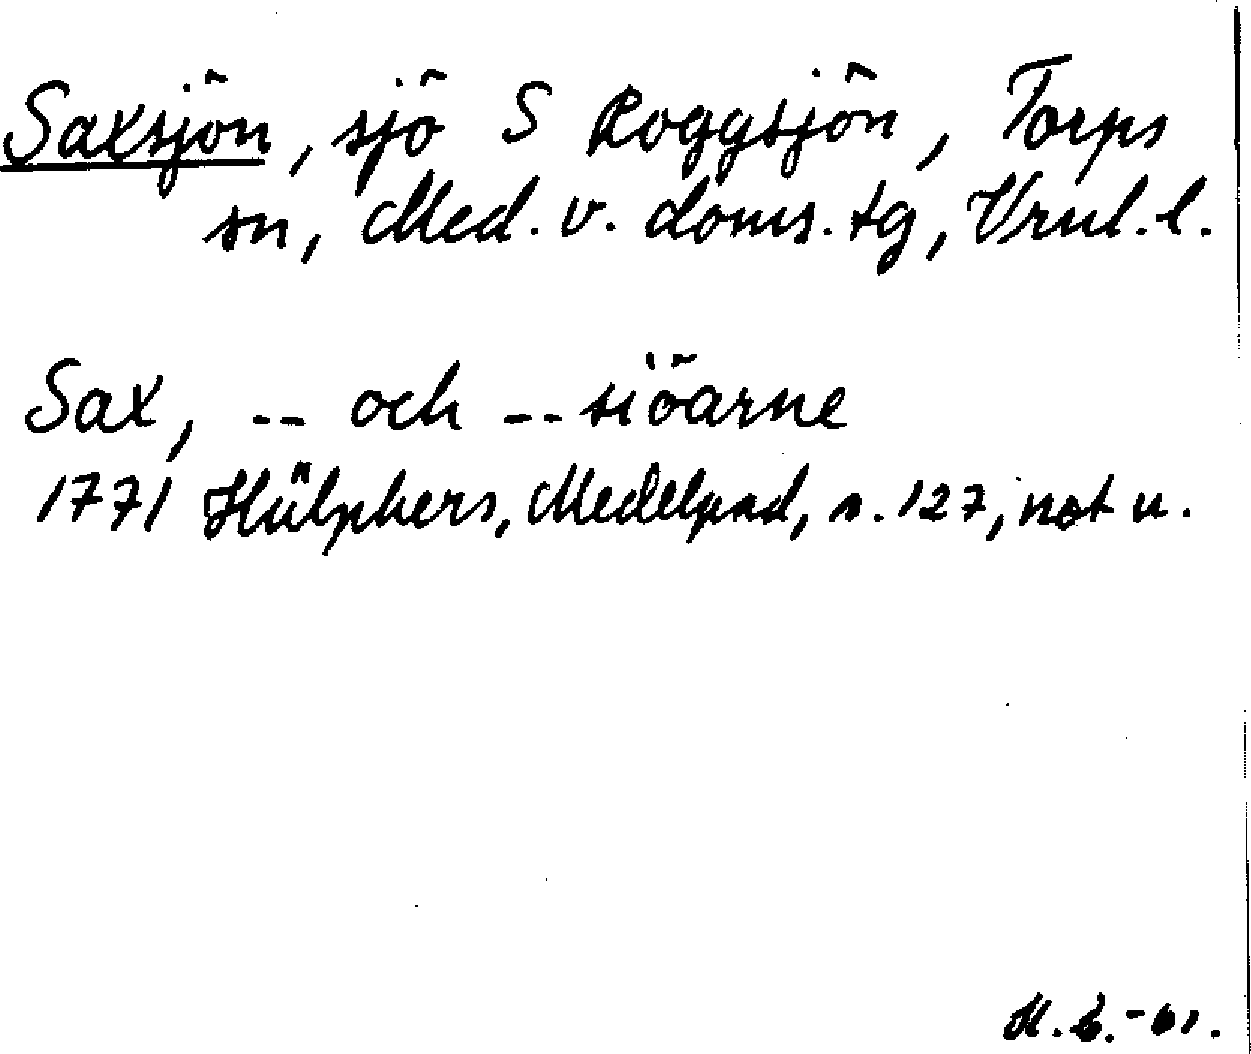 Saxsjön, sjö S Roggsjön, Torps
sn, Med. v. doms. tg, Vrnl. l.
Sax, -- och -- siöarne
1771 Hülphers, Medelpad, s. 127, not u.